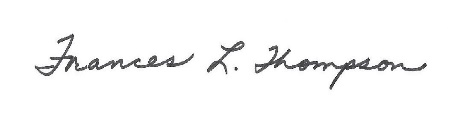 Frances L. Thompson